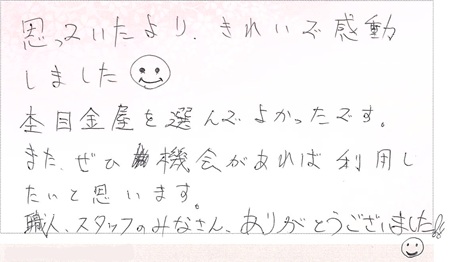 思っていたより、きれいで感動
しました
杢目金屋を選んでよかったです。
また、ぜひ機会があれば利用し
たいと思います。
職人、スタッフのみなさん、ありがとうございました!!